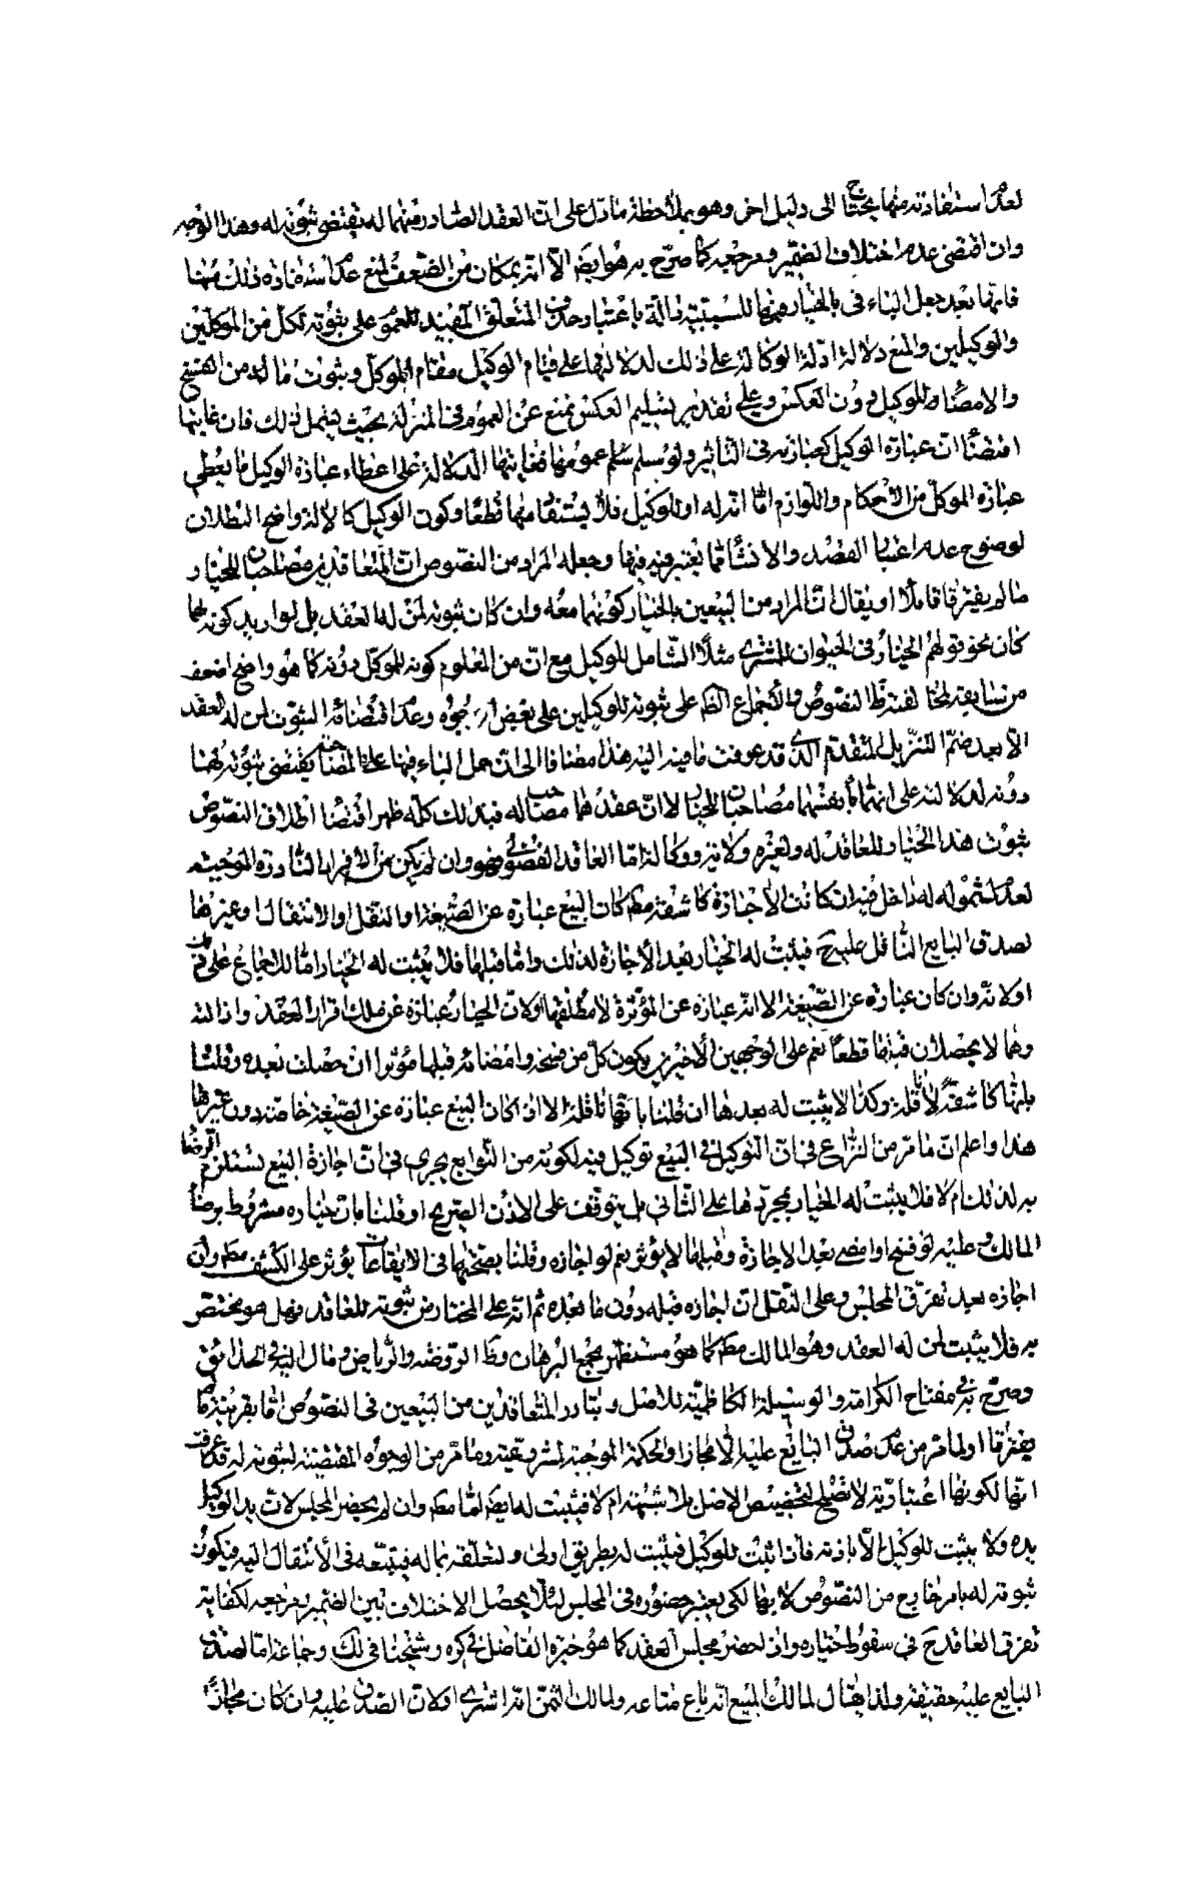 لعدم استفادته منها يحتاج الى دليل اخر وهو بملاحظة ما دل على ان العقد الصادر منهما له يقتضى ثبوته له وهذا الوجه
وان اقتضى عدم اختلاف الضمير ومرجعه كما صرح به هو ايضا الا انه بمكان من الضعف لمنع عدم استفادة ذلك منها
فانها بعد جعل الباء فى بالخيار فيها للسببية دالة باعتبار حذف المتعلق المفيد للعموم على ثبوته لكل من الموكلين
والوكيلين والمنع دلالة ادلة الوكالة على ذلك لدلالتها على قيام الوكيل مقام الموكل وثبوت ما له من الفسخ
والامضاء للوكيل دون العكس وعلى تقدير تسليم العكس نمنع عن العموم فى المنزلة بحيث يشمل ذلك فان غايتها
اقتضاء ان عبارة الوكيل كعبارته فى التاثير ولو سلم سلم عمومها فغايتها الدلالة على اعطاء عبارة الوكيل ما يعطى
عبارة الموكل من الاحكام واللوازم اما انه له او للوكيل فلا يستفاد منها قطعا وكون الوكيل كالالة واضح البطلان
لوضوح عدم اعتبار القصد والانشاء مما يعتبر فيه فيها وجعله المراد من النصوص ان المتعاقدين مصاحبان للخيار
ما لم يفترقا قاملا او يقال ان المراد من البيعين بالخيار كونهما معه وان كان ثبوته لمن له العقد بل لو اريد كونه لهما
كان نحو قولهم الخيار فى الحيوان للمشترى مثلا الشامل للوكيل مع ان من المعلوم كونه للموكل دونه كما هو واضح اضعف
من سابقه لمخالفته ظ النصوص والاجماع الظ على ثبوته للوكيلين على بعض الوجوه وعدم اقتضائه الثبوت لمن له العقد
الا بعد ضم التنزيل المتقدم الذى قد عرفت ما فيه اليه هذا مضافا الى ان حمل الباء فيها على المصاحبة يقتضى ثبوته لهما
دونه لدلالته على انهما بانفسهما مصاحبان للخيار لا ان عقدهما مصاحب له فبذلك كله ظهر اقتضاء اطلاق النصوص
ثبوت هذا الخيار للعاقد له ولغيره ولاية ووكالة اما العاقد الفضولى فهو وان لم يكن من الافراد النادرة الموجبة
لعدم شموله له داخل فيه ان كانت الاجازة كاشفة مط كان البيع عبارة عن الصيغة او النقل او الانتقال او غيرها
لصدق البايع الناقل عليه ح فيثبت له الخيار بعد الاجازة لذلك واما قبلها فلا يثبت له الخيار اما للاجماع على
او لانه وان كان عبارة عن الصيغة الا انه عبارة عن المؤثرة لا مطلقها او لان الخيار عبارة عن ملك اقرار العقد وازالته
وهما لا يحصلان قبلها قطعا نعم على الوجهين الاخيرين يكون كل من فسخه وامضائه قبلها مؤثرا ان حصلت بعده وقلنا
بانها كاشفة لا ناقلة وكذا لا يثبت له بعدها ان قلنا بانها ناقلة الا ان كان البيع عبارة عن الصيغة خاصة دون غيرها
هذا واعلم ان ما مر من النزاع فى ان التوكيل فى البيع توكيل فيه لكونه من التوابع يجرى فى ان اجازة البيع يستلزم الرضا
به لذلك ام لا فلا يثبت له الخيار بمجردها على الثانى بل يتوقف على الاذن الصريح او قلنا بان خياره مشروط برضا
المالك وعليه لو فسخ او امضى بعد الاجازة وقبلها لا يؤثر نعم لو اجازه وقلنا بصحتها فى الايقاعات يؤثر على الكشف مط وان
اجازه بعد تفرق المجلس وعلى النقل ان اجازه قبله دون ما بعده ثم انه على المختار من ثبوته للعاقد فهل هو مختص
به فلا يثبت لمن له العقد وهو المالك مط كما هو مستظهر مجمع البرهان وظ الروضة والرياض ومال اليه فى الحدائق
وصرح به فى مفتاح الكرامة والوسيلة الكاظمية للاصل وتبادر المتعاقدين من البيعين فى النصوص اما بقرينة ما
يفترقا او لما مر من عدم صدق البايع عليه الا مجازا والحكمة الموجبة لشرعيته وما مر من الوجوه المقتضية لثبوته له قد عرفت
انها لكونها اعتبارية لا تصلح لتخصيص الاصل بلا شبهة ام لا فيثبت له ايضا اما مط وان لم يحضر المجلس لان يد الوكيل
يده ولا يثبت للوكيل الا باذنه فان اثبت للوكيل فيثبت له بطريق اولى ولتعلقه بماله فيتبعه فى الانتقال اليه فيكون
ثبوته له بامر خارج من النصوص لا بها لكى يعتبر حضوره فى المجلس لئلا يحصل الاختلاف بين الضمير ومرجعه لكفاية
تفرق العاقد ح فى سقوط اختياره وان لحضر مجلس العقد كما هو خيرة الفاضل فى كره وشيخنا فى لك وجماعة اما لصدق
البايع عليه حقيقة ولذا يقال لمالك المبيع انه باع متاعه ولمالك الثمن انه اشترى او لان الصدق عليه وان كان مجازا